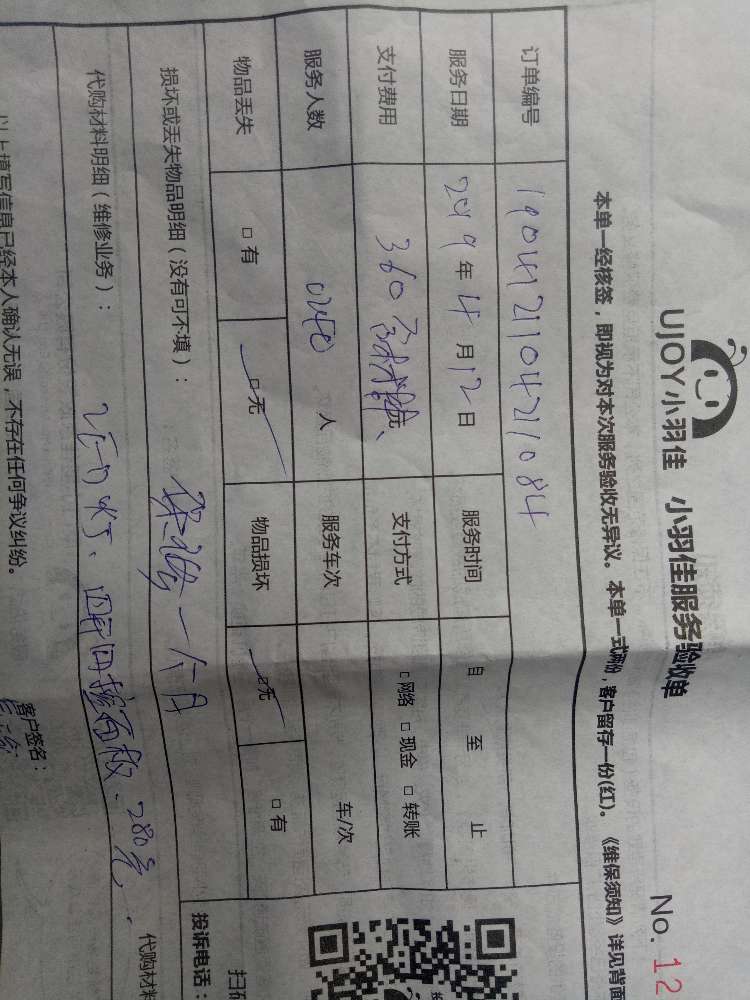 UJOY小羽佳 小羽佳服务验收单
No. 12
本单一经核签，即视为对本次服务验收无异议。本单一式两份，客户留存一份(红)。《维保须知》详见背面
订单编号 190412110421084
服务日期 2019年4月12日 服务时间 自 至 止
支付费用 360 元 支付方式 □网络 □现金 □转账
服务人数 人 服务车次 车/次
物品丢失 □有 □无 物品损坏 □无 □有
损坏或丢失物品明细（没有可不填）： 保修一个月
代购材料明细（维修业务）： 280元 代购材料
以上填写信息已经本人确认无误，不存在任何争议纠纷。
客户签名：
投诉电话：
扫码